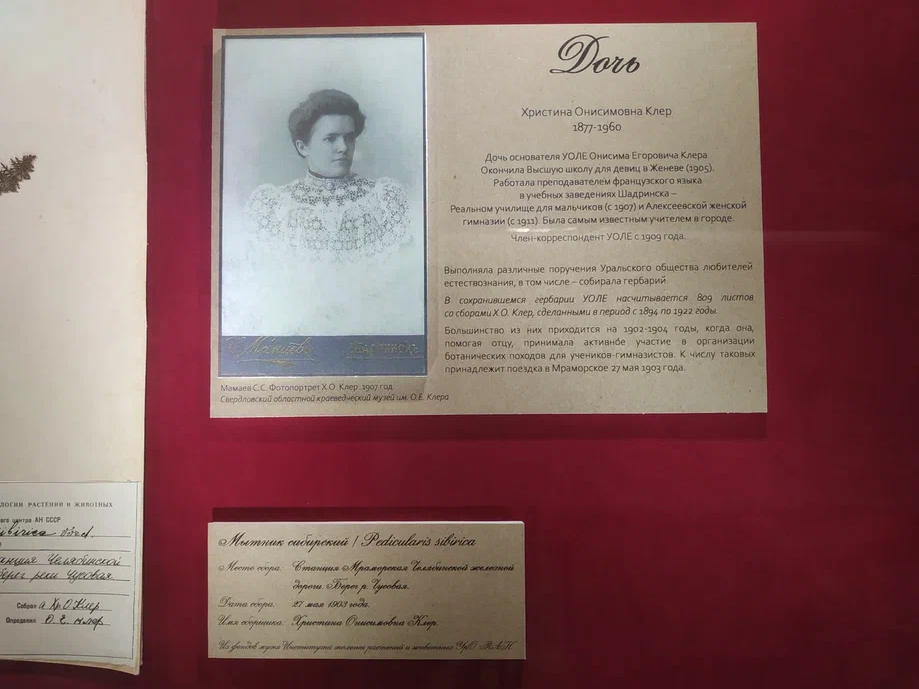 Дочь
Христина Онисимовна Клер
1877-1960
Дочь основателя УОЛЕ Онисима Егоровича Клера
Окончила Высшую школу для девиц в Женеве (1905).
Работала преподавателем французского языка
в учебных заведениях Шадринска –
Реальном училище для мальчиков (с 1907) и Алексеевской женской
гимназии (с 1911). Была самым известным учителем в городе.
Член-корреспондент УОЛЕ с 1909 года.
Выполняла различные поручения Уральского общества любителей
естествознания, в том числе – собирала гербарий
В сохранившемся гербарии УОЛЕ насчитывается 809 листов
со сборами Х.О. Клер, сделанными в период с 1894 по 1922 годы.
Большинство из них приходится на 1902-1904 годы, когда она,
помогая отцу, принимала активное участие в организации
ботанических походов для учеников-гимназистов. К числу таковых
принадлежит поездка в Мраморское 27 мая 1903 года.
Мамаев С.С. Фотопортрет Х.О. Клер. 1907 год
Свердловский областной краеведческий музей им. О.Е. Клера
ЛОГИИ РАСТЕНИЙ И ЖИВОТНЫХ
ого центра АН СССР
sibirica
анция Челябинской
берег реки Чусовая.
Собрал а Хр. О Клер
Определил О. Е. Клер
Мытник сибирский / Pedicularis sibirica
Место сбора: Станция Мраморская Челябинской железной
дороги. Берег р. Чусовая.
Дата сбора: 27 мая 1903 года.
Имя сборщика: Христина Онисимовна Клер.
Из фондов музея Института экологии растений и животных УрО РАН